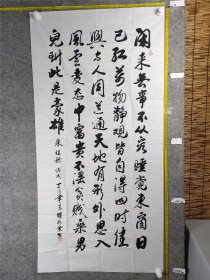 閑来無事不從容睡覺東窗日
已紅萬物静觀皆自得四時佳
興与人同道通天地有形外思入
風雲變态中富貴不淫貧賤樂男
兒到此是豪雄
宋程颢